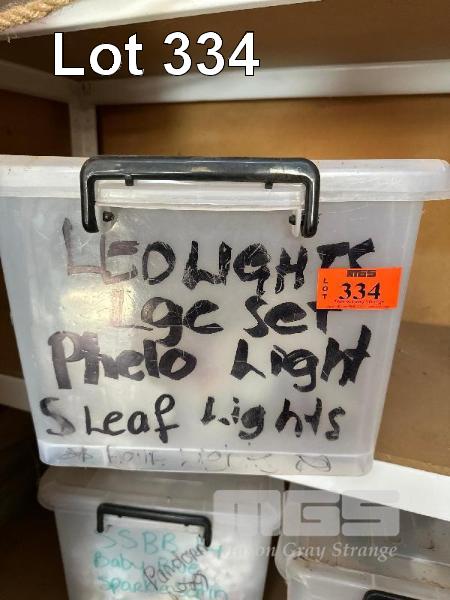 Lot 334
LED LIGHTS
Lge Set
Phelo Light
5 Leaf Lights
MGS
LOT
334
SSBB
Baby
Sparkle
MGS
Mason Gray Strange